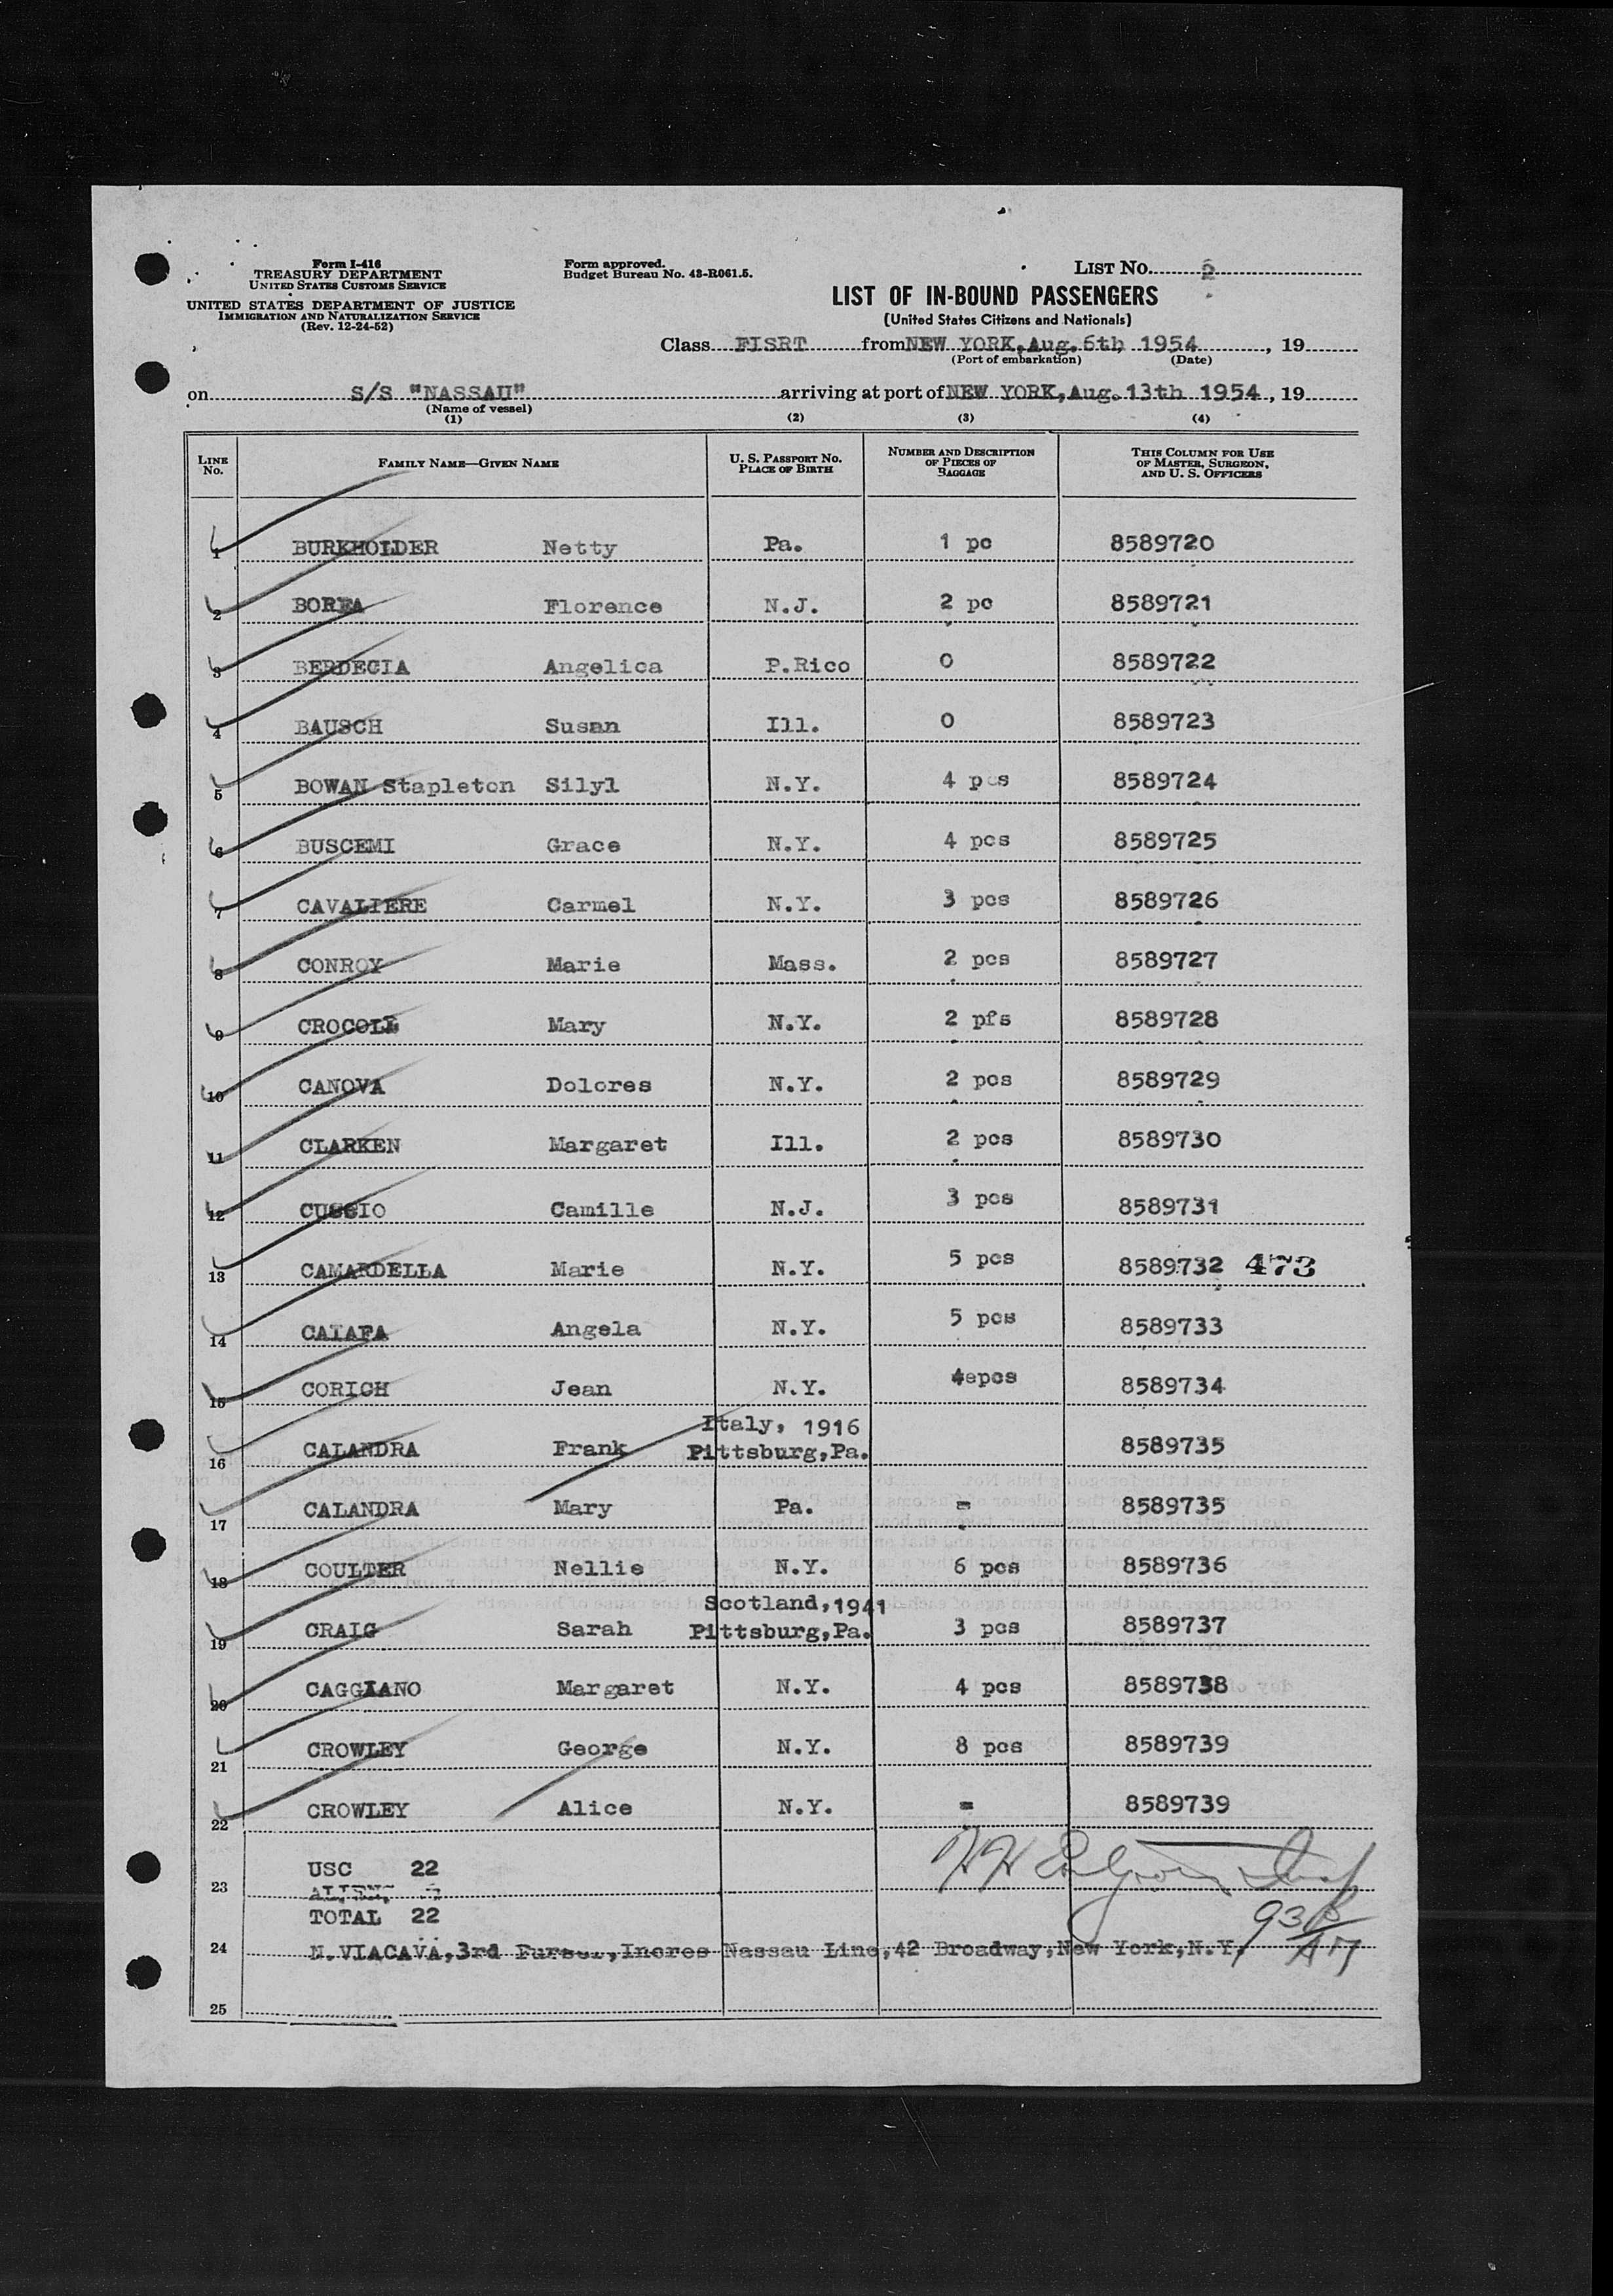 Form I-416
TREASURY DEPARTMENT
UNITED STATES CUSTOMS SERVICE
UNITED STATES DEPARTMENT OF JUSTICE
IMMIGRATION AND NATURALIZATION SERVICE
(Rev. 12-24-52)
Form approved.
Budget Bureau No. 43-R061.5.
LIST NO. 2
LIST OF IN-BOUND PASSENGERS
(United States Citizens and Nationals)
Class FISRT from NEW YORK, Aug. 6th 1954, 19
(Port of embarkation) (Date)
on S/S "NASSAU" arriving at port of NEW YORK, Aug. 13th 1954, 19
(Name of vessel)
(1) (2) (3) (4)
LINE NO. FAMILY NAME—GIVEN NAME U. S. PASSPORT NO. PLACE OF BIRTH NUMBER AND DESCRIPTION OF PIECES OF BAGGAGE THIS COLUMN FOR USE OF MASTER, SURGEON, AND U. S. OFFICERS
1 BURKHOLDER Netty Pa. 1 pc 8589720
2 BOREA Florence N.J. 2 pc 8589721
3 BERDECIA Angelica P.Rico 0 8589722
4 BAUSCH Susan Ill. 0 8589723
5 BOWAN Stapleton Silyl N.Y. 4 pcs 8589724
6 BUSCEMI Grace N.Y. 4 pcs 8589725
7 CAVALIERE Carmel N.Y. 3 pcs 8589726
8 CONROY Marie Mass. 2 pcs 8589727
9 CROCOLL Mary N.Y. 2 pfs 8589728
10 CANOVA Dolores N.Y. 2 pcs 8589729
11 CLARKEN Margaret Ill. 2 pcs 8589730
12 CUSCIO Camille N.J. 3 pcs 8589731
13 CAMARDELLA Marie N.Y. 5 pcs 8589732 473
14 CAIAFA Angela N.Y. 5 pcs 8589733
15 CORICH Jean N.Y. 4epcs 8589734
Italy, 1916
16 CALANDRA Frank Pittsburg,Pa. 8589735
17 CALANDRA Mary Pa. = 8589735
18 COULTER Nellie N.Y. 6 pcs 8589736
Scotland,1941
19 CRAIG Sarah Pittsburg,Pa. 3 pcs 8589737
20 CAGGIANO Margaret N.Y. 4 pcs 8589738
21 CROWLEY George N.Y. 8 pcs 8589739
22 CROWLEY Alice N.Y. = 8589739
USC 22
23 ALIENS
TOTAL 22
24 M.VIACAVA,3rd Purser,Incres Nassau Line,42 Broadway,New York,N.Y.
25